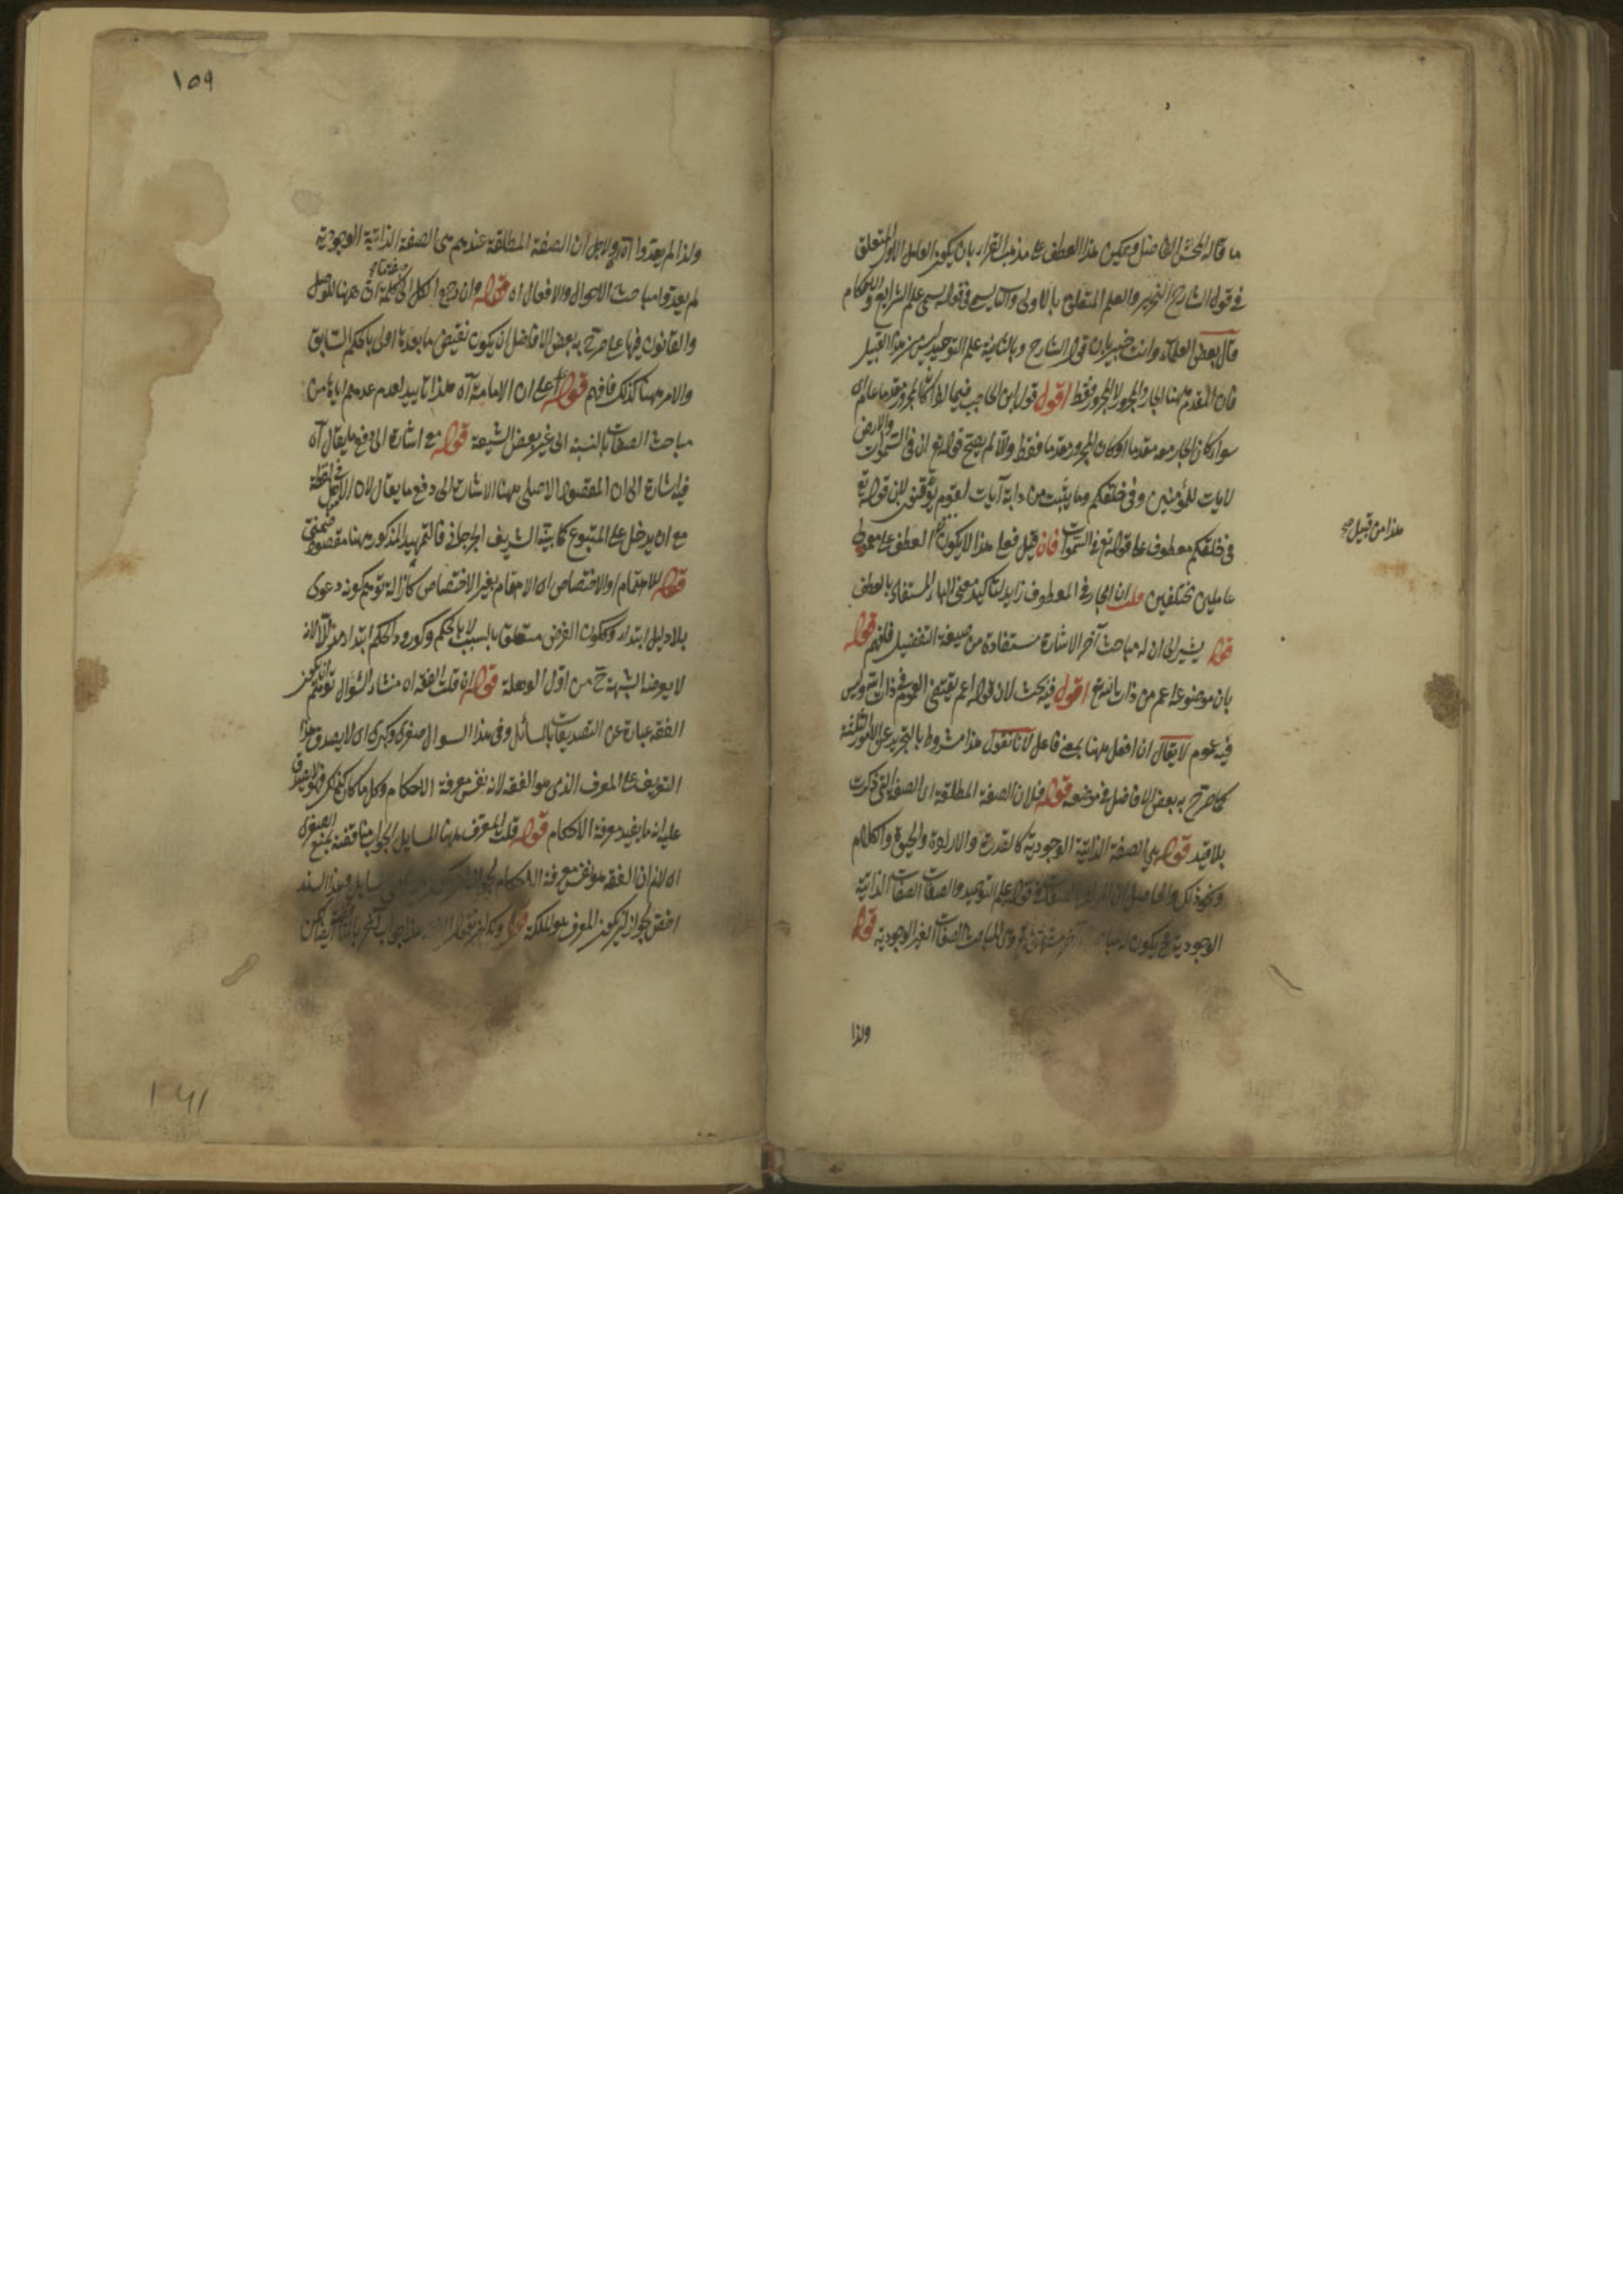 ما قاله المحشى الفاضل ويمكن هذا العطف على مذهب الفراء بان يكون العامل الاول المتعلق
فى قول الشارح التحرير والعلم المتعلق بالاولى والثانى يسمى فى قوله يسمى علم الشرايع والاحكام
قال بعض العلماء وانت خبير بان قول الشارح وبالثانية علم التوحيد ليس من هذا القبيل
فان المقدم ههنا الجار والمجرور لا المجرور فقط اقول قول ابن الحاجب فيما اذا كان المجرور مقدما عام اى
سواء كان الجار معه مقدما او كان المجرور مقدما فقط والا لم يصح قوله تع ان فى السموات والارض
لايات للمؤمنين وفى خلقكم وما يبث من دابة آيات لقوم يوقنون لان قوله تع
فى خلقكم معطوف على قوله تع فى السموات فان قيل فعلى هذا لا يكون العطف على معمولى
هذا من قبيل صح
عاملين مختلفين قلت ان الجار فى المعطوف زايد لتاكيد معنى الجار المستفاد بالعطف
قوله يشير الى ان له مباحث آخر الاشارة مستفادة من صيغة التفضيل فافهم قوله
بان موضوعه اعم من ذات الله تع اقول فيه بحث لان قوله اعم يقتضى العموم فى ذات الله وليس
فيه عموم لا يقال ان افعل ههنا بمعنى فاعل لانا نقول هذا مشروط بالتجرد عن الامور الثلثة
كما صرح به بعض الافاضل فى موضعه قوله فلان الصفة المطلقة اى الصفة التى ذكرت
بلا قيد قوله هى الصفة الذاتية الوجودية كالقدرة والارادة والحيوة والكلام
ونحو ذلك والحاصل ان المراد بالصفات فى قوله علم التوحيد والصفات الصفات الذاتية
الوجودية فيكون له مباحث آخر وهى المباحث الصفات الغير الوجودية قوله
ولذا
١٥٩
ولذا لم يعدوا اه ولاجل ان الصفة المطلقة عندهم هى الصفة الذاتية الوجودية
لم يعدوا مباحث الاحوال والافعال اه قوله وان رجع الكل الى صفة ما كلمة ان ههنا للوصل
والقانون فيها على ما صرح به بعض الافاضل ان يكون نقيض ما بعدها اولى بالحكم السابق
والامر ههنا كذلك فافهم قوله على ان الامامية اه هذا تاييد لعدم عدهم اياها من
مباحث الصفات بالنسبة الى غير بعض الشيعة قوله مع اشارة الى دفع ما يقال اه
فيه اشارة الى ان المقصود الاصلى ههنا الاشارة الى دفع ما يقال لان الاصل فى لفظة
مع ان يدخل على المتبوع كما بينه الشريف الجرجانى فالتمهيد المذكور ههنا مقصود ضمنى
قوله للاهتمام او الاختصاص اى الاهتمام بغير الاختصاص كازالة توهم كونه دعوى
بلا دليل ابتداء وككون الغرض متعلق بالسبب لا بالحكم وكورود الحكم ابتداء مدللا لانه
لا يعرضه الشبهة ح من اول الوهلة قوله ان قلت الفقه اه منشاء السؤال توهم ان يكون
الفقه عبارة عن التصديقات بالمسائل وفى هذا السوال صغرى وكبرى اى لا يصدق هذا
التعريف على المعرف الذى هو الفقه لانه نفس معرفة الاحكام وكل ما كان كذلك فهو لا يصدق
عليه انه ما يفيد معرفة الاحكام قوله قلت المعرف ههنا المسايل الجواب مناقضة بمنع الصغرى
اى لانم ان الفقه هو نفس معرفة الاحكام لجواز ان يكون هو المسايل وهذا السند
اخص لجواز ان يكون المعرف هو الملكة قوله ولك ان تقول هذا جواب آخر
١٦١